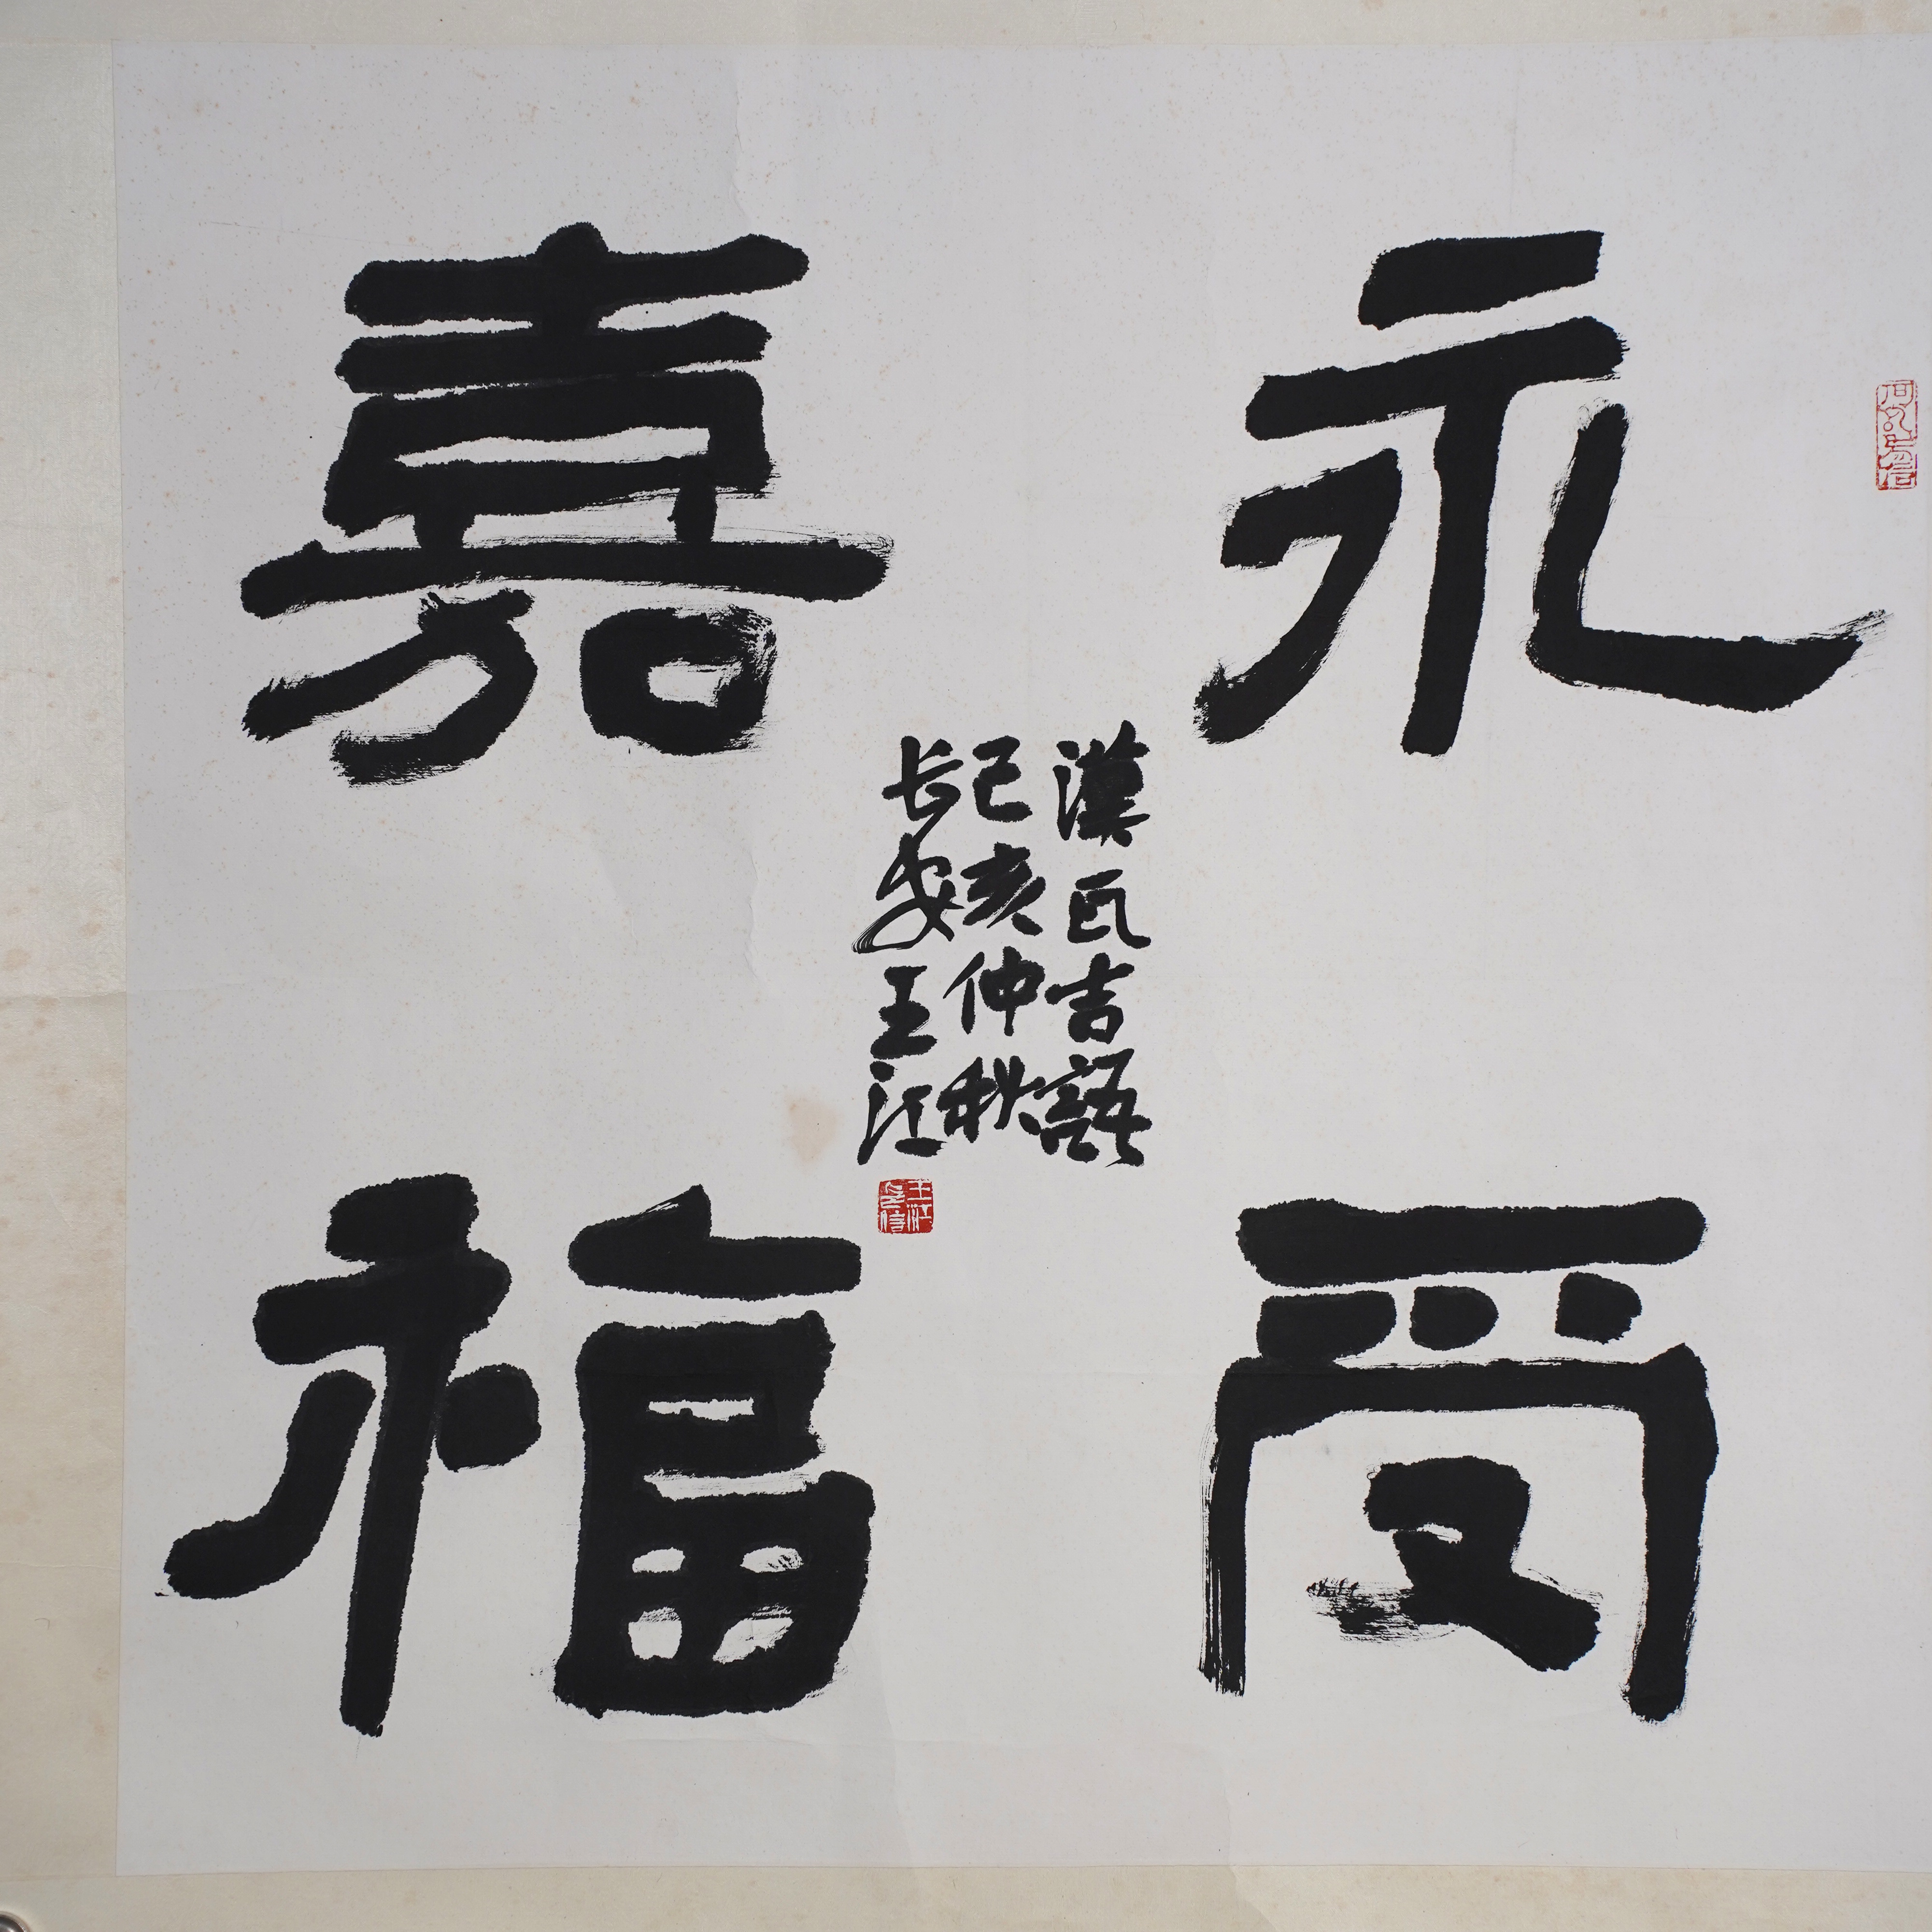 永受
嘉福
漢瓦吉語
己亥仲秋
长安王江
王江